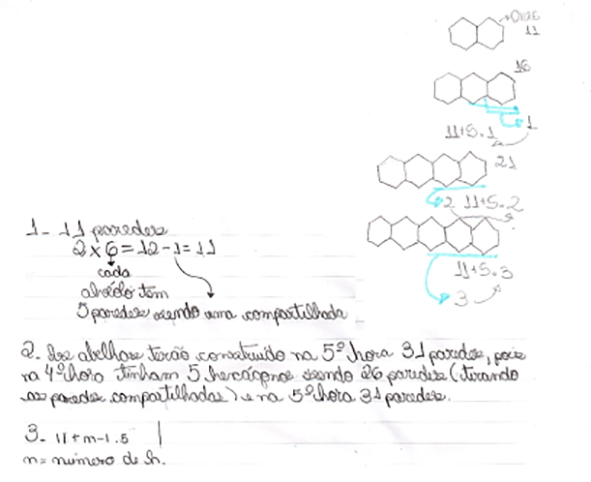 Onze
11
16
1
11+5.1
21
2 11+5.2
11+5.3
3
1- 11 paredes
2 x 6 = 12 - 1 = 11
cada
alvéolo tem
5 paredes sendo uma compartilhada
2. As abelhas terão construído na 5ª hora 31 paredes, pois
na 4ª hora tinham 5 hexágonos sendo 26 paredes (tirando
as paredes compartilhadas) e na 5ª hora 31 paredes.
3- 11 + n-1.5
n= número de h.